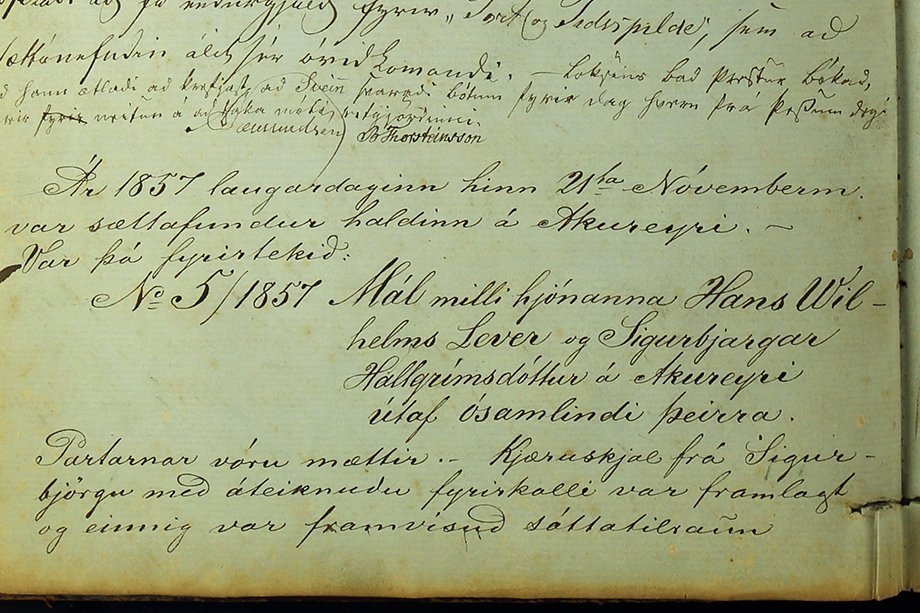 að fá endurgjald fyrir „Tort og Tidsspilde", sem að
sættanefndin áleit sér óviðkomandi. — Loksins bað Prestur bókað,
hann ætlaði að krefjast að Sveinn svaraði bótum fyrir dag hvern frá þessum degi
fyrir neitun á að taka móti réttgjörðinni.
Sæmundsen BThorsteinsson
Ár 1857 laugardaginn hinn 21ta Nóvemberm.
var sættafundur haldinn á Akureyri. —
Var þá fyrirtekið:
No 5/1857 Mál milli hjónanna Hans Wil-
helms Lever og Sigurbjargar
Hallgrímsdóttur á Akureyri
útaf ósamlindi þeirra.
Partarnar vóru mættir. — Kjæruskjal frá Sigur-
björgu með áteiknuðu fyrirkalli var framlagt
og einnig var framvísuð sáttatilraun